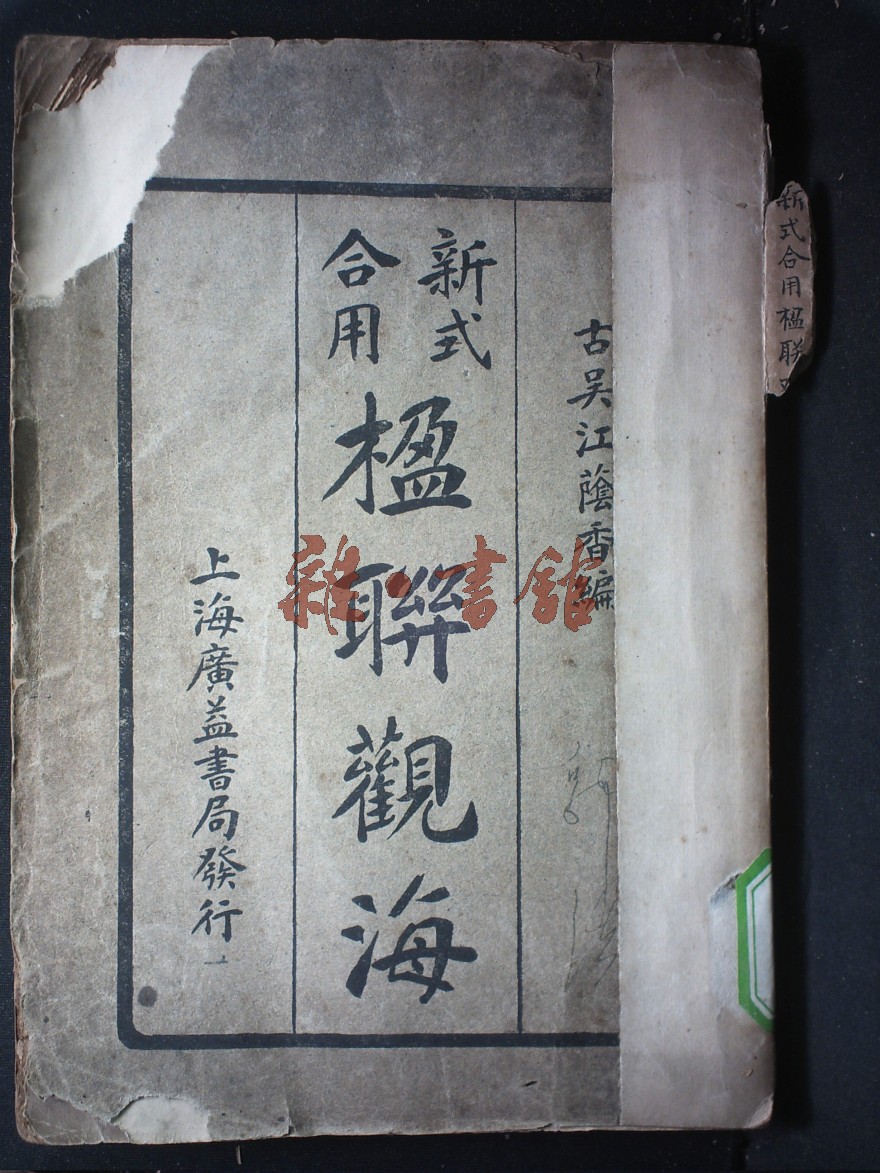 古吴江蔭香編
新式
合用
楹聯觀海
上海廣益書局發行
新式合用楹联
雜書館